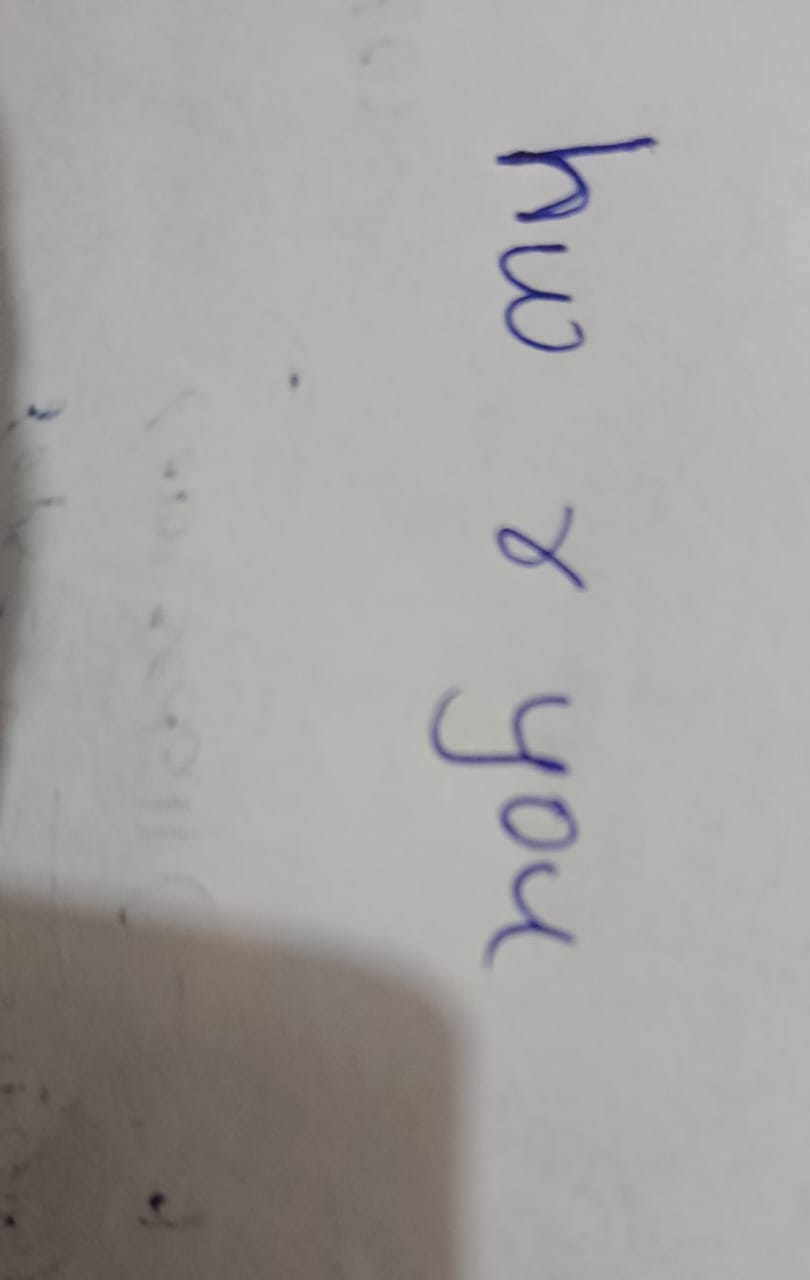 hw r you